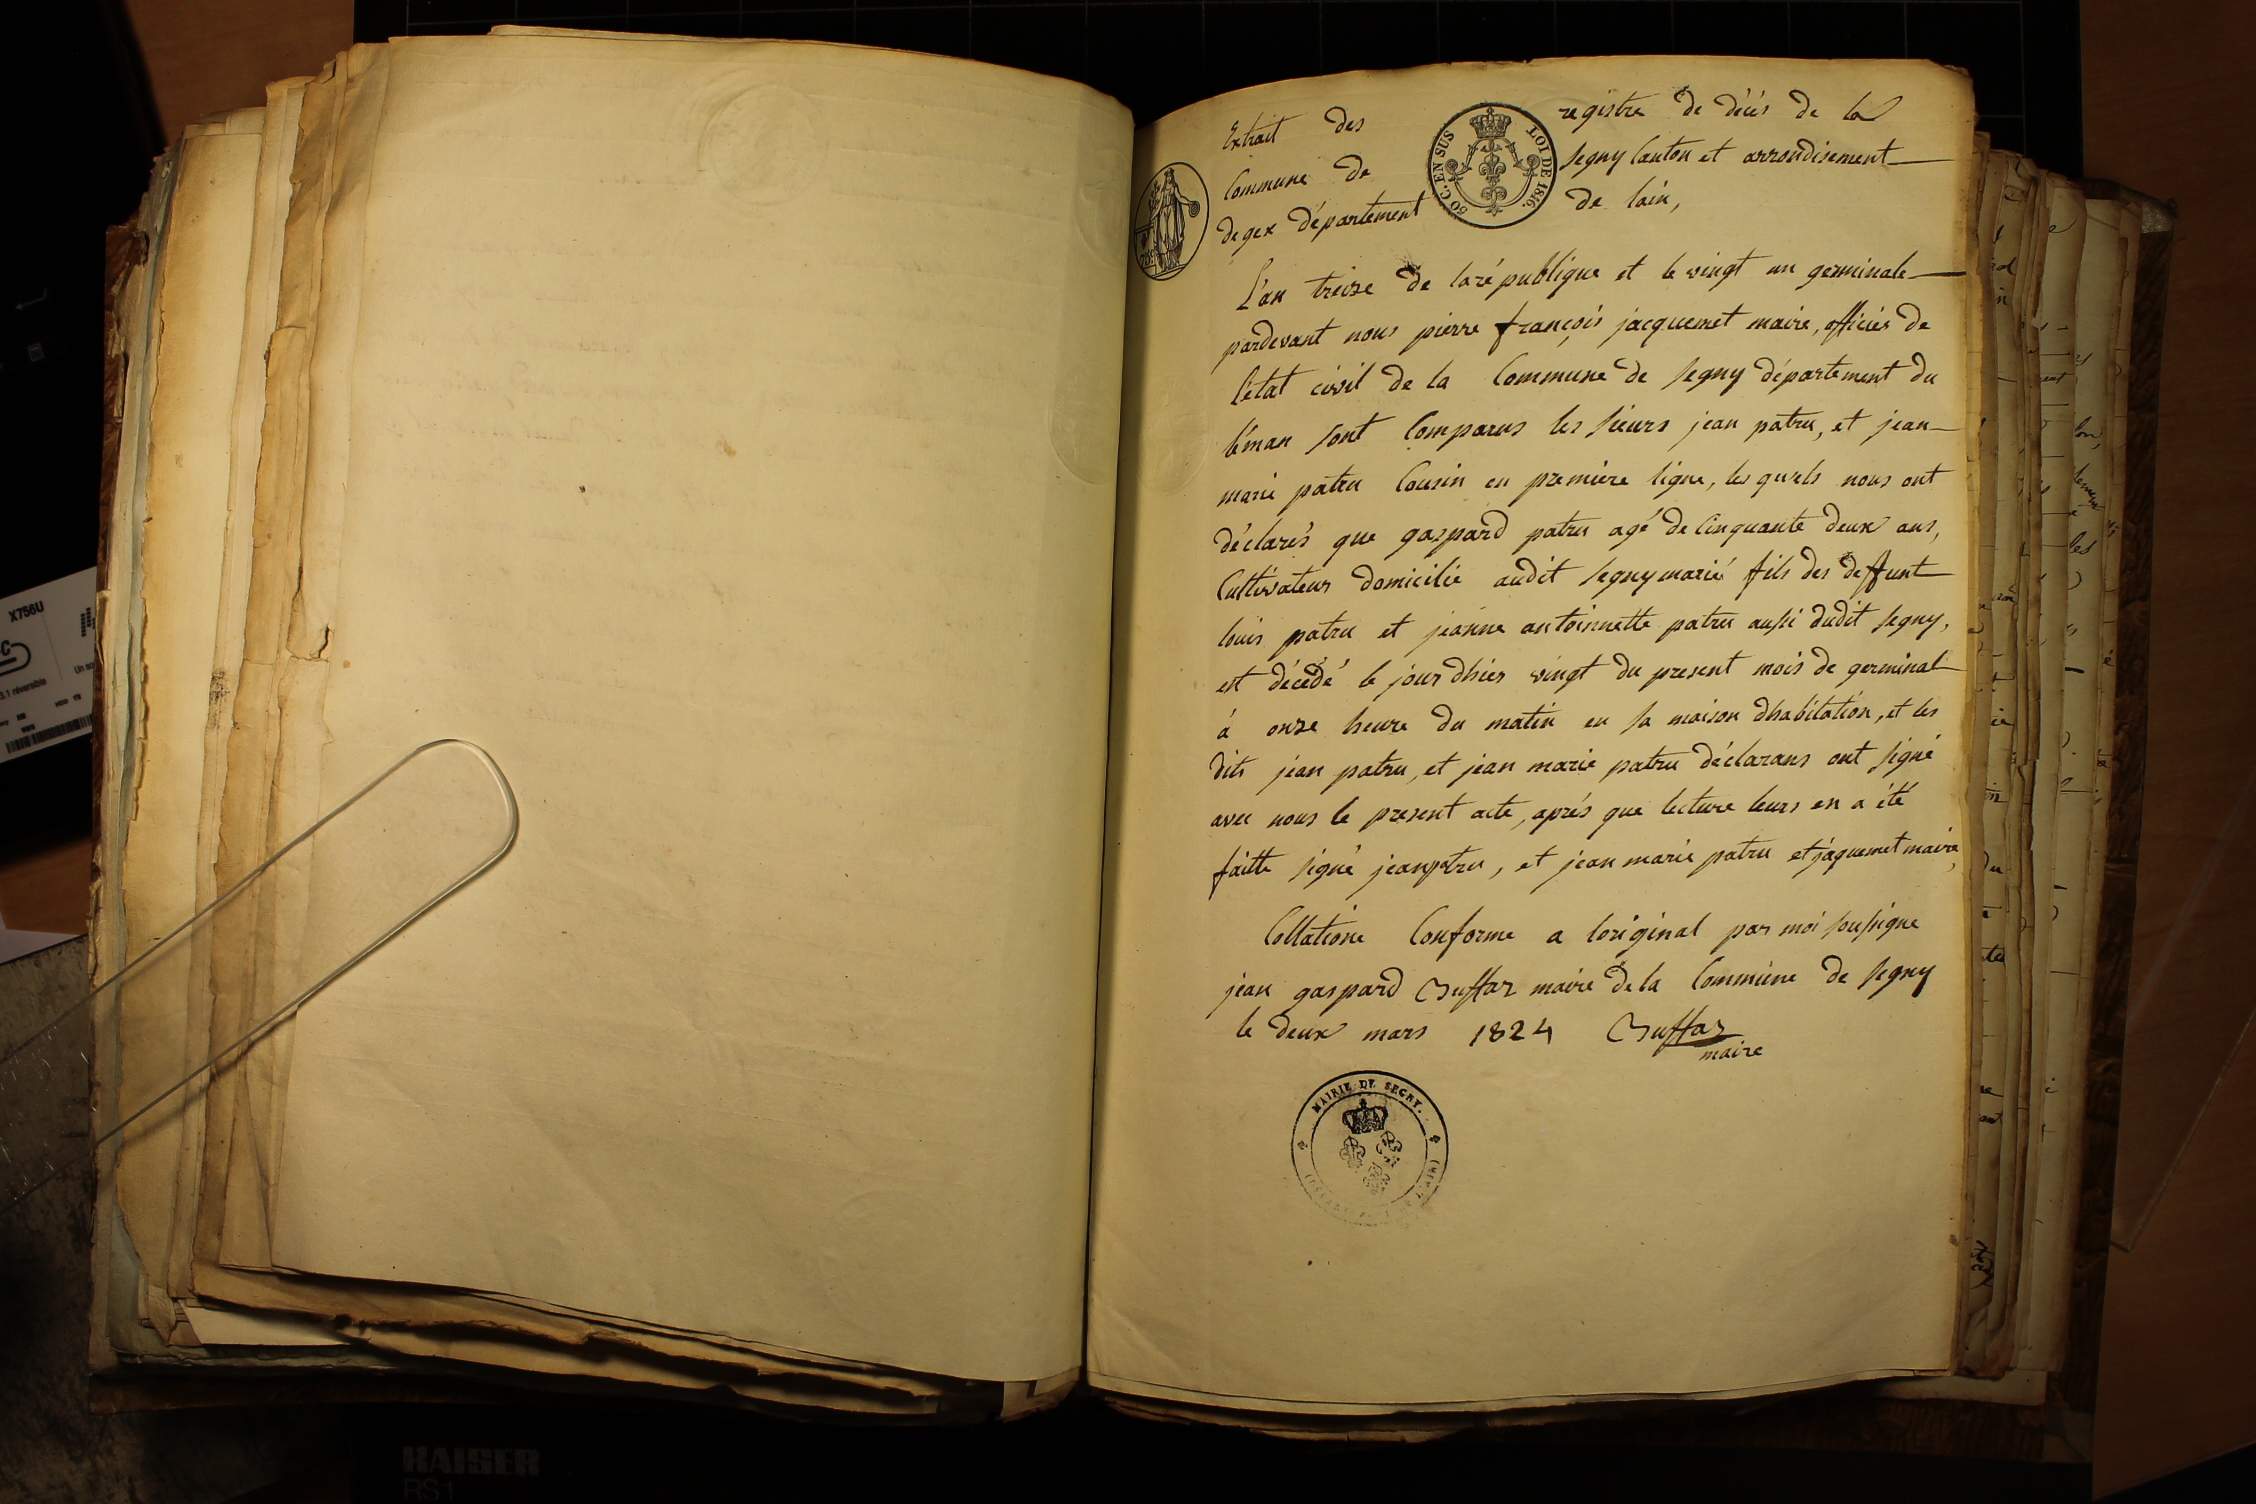 Extrait des registre de décès de la
Commune de Segny Canton et arrondisement
de gex département de lain,
50 C. EN SUS
LOI DE 1816.
L'an treize de la république et le vingt un germinale
pardevant nous pierre françois jacquemet maire, officier de
l'état civil de la Commune de Segny département du
léman sont Comparus les sieurs jean patru, et jean
marie patru Cousin en premiere ligne, les quels nous ont
déclarés que gaspard patru agé de Cinquante deux ans,
Cultivateur domicilié audit Segny marié fils des deffunt
louis patru et jeanne antoinnette patru aussi dudit Segny,
est décédé le jour dhier vingt du present mois de germinal
à onze heure du matin en sa maison dhabitation, et les
dits jean patru, et jean marie patru déclarans ont signé
avec nous le present acte, après que lecture leurs en a été
faitte signé jean patru, et jean marie patru et jaquemet maire,
Collatione Conforme a loriginal par moi soussigne
jean gaspard Buffaz maire de la Commune de Segny
le deux mars 1824 Buffaz
maire
MAIRIE DE SEGNY.
X756U
3.1 réversible
KAISER
RS1